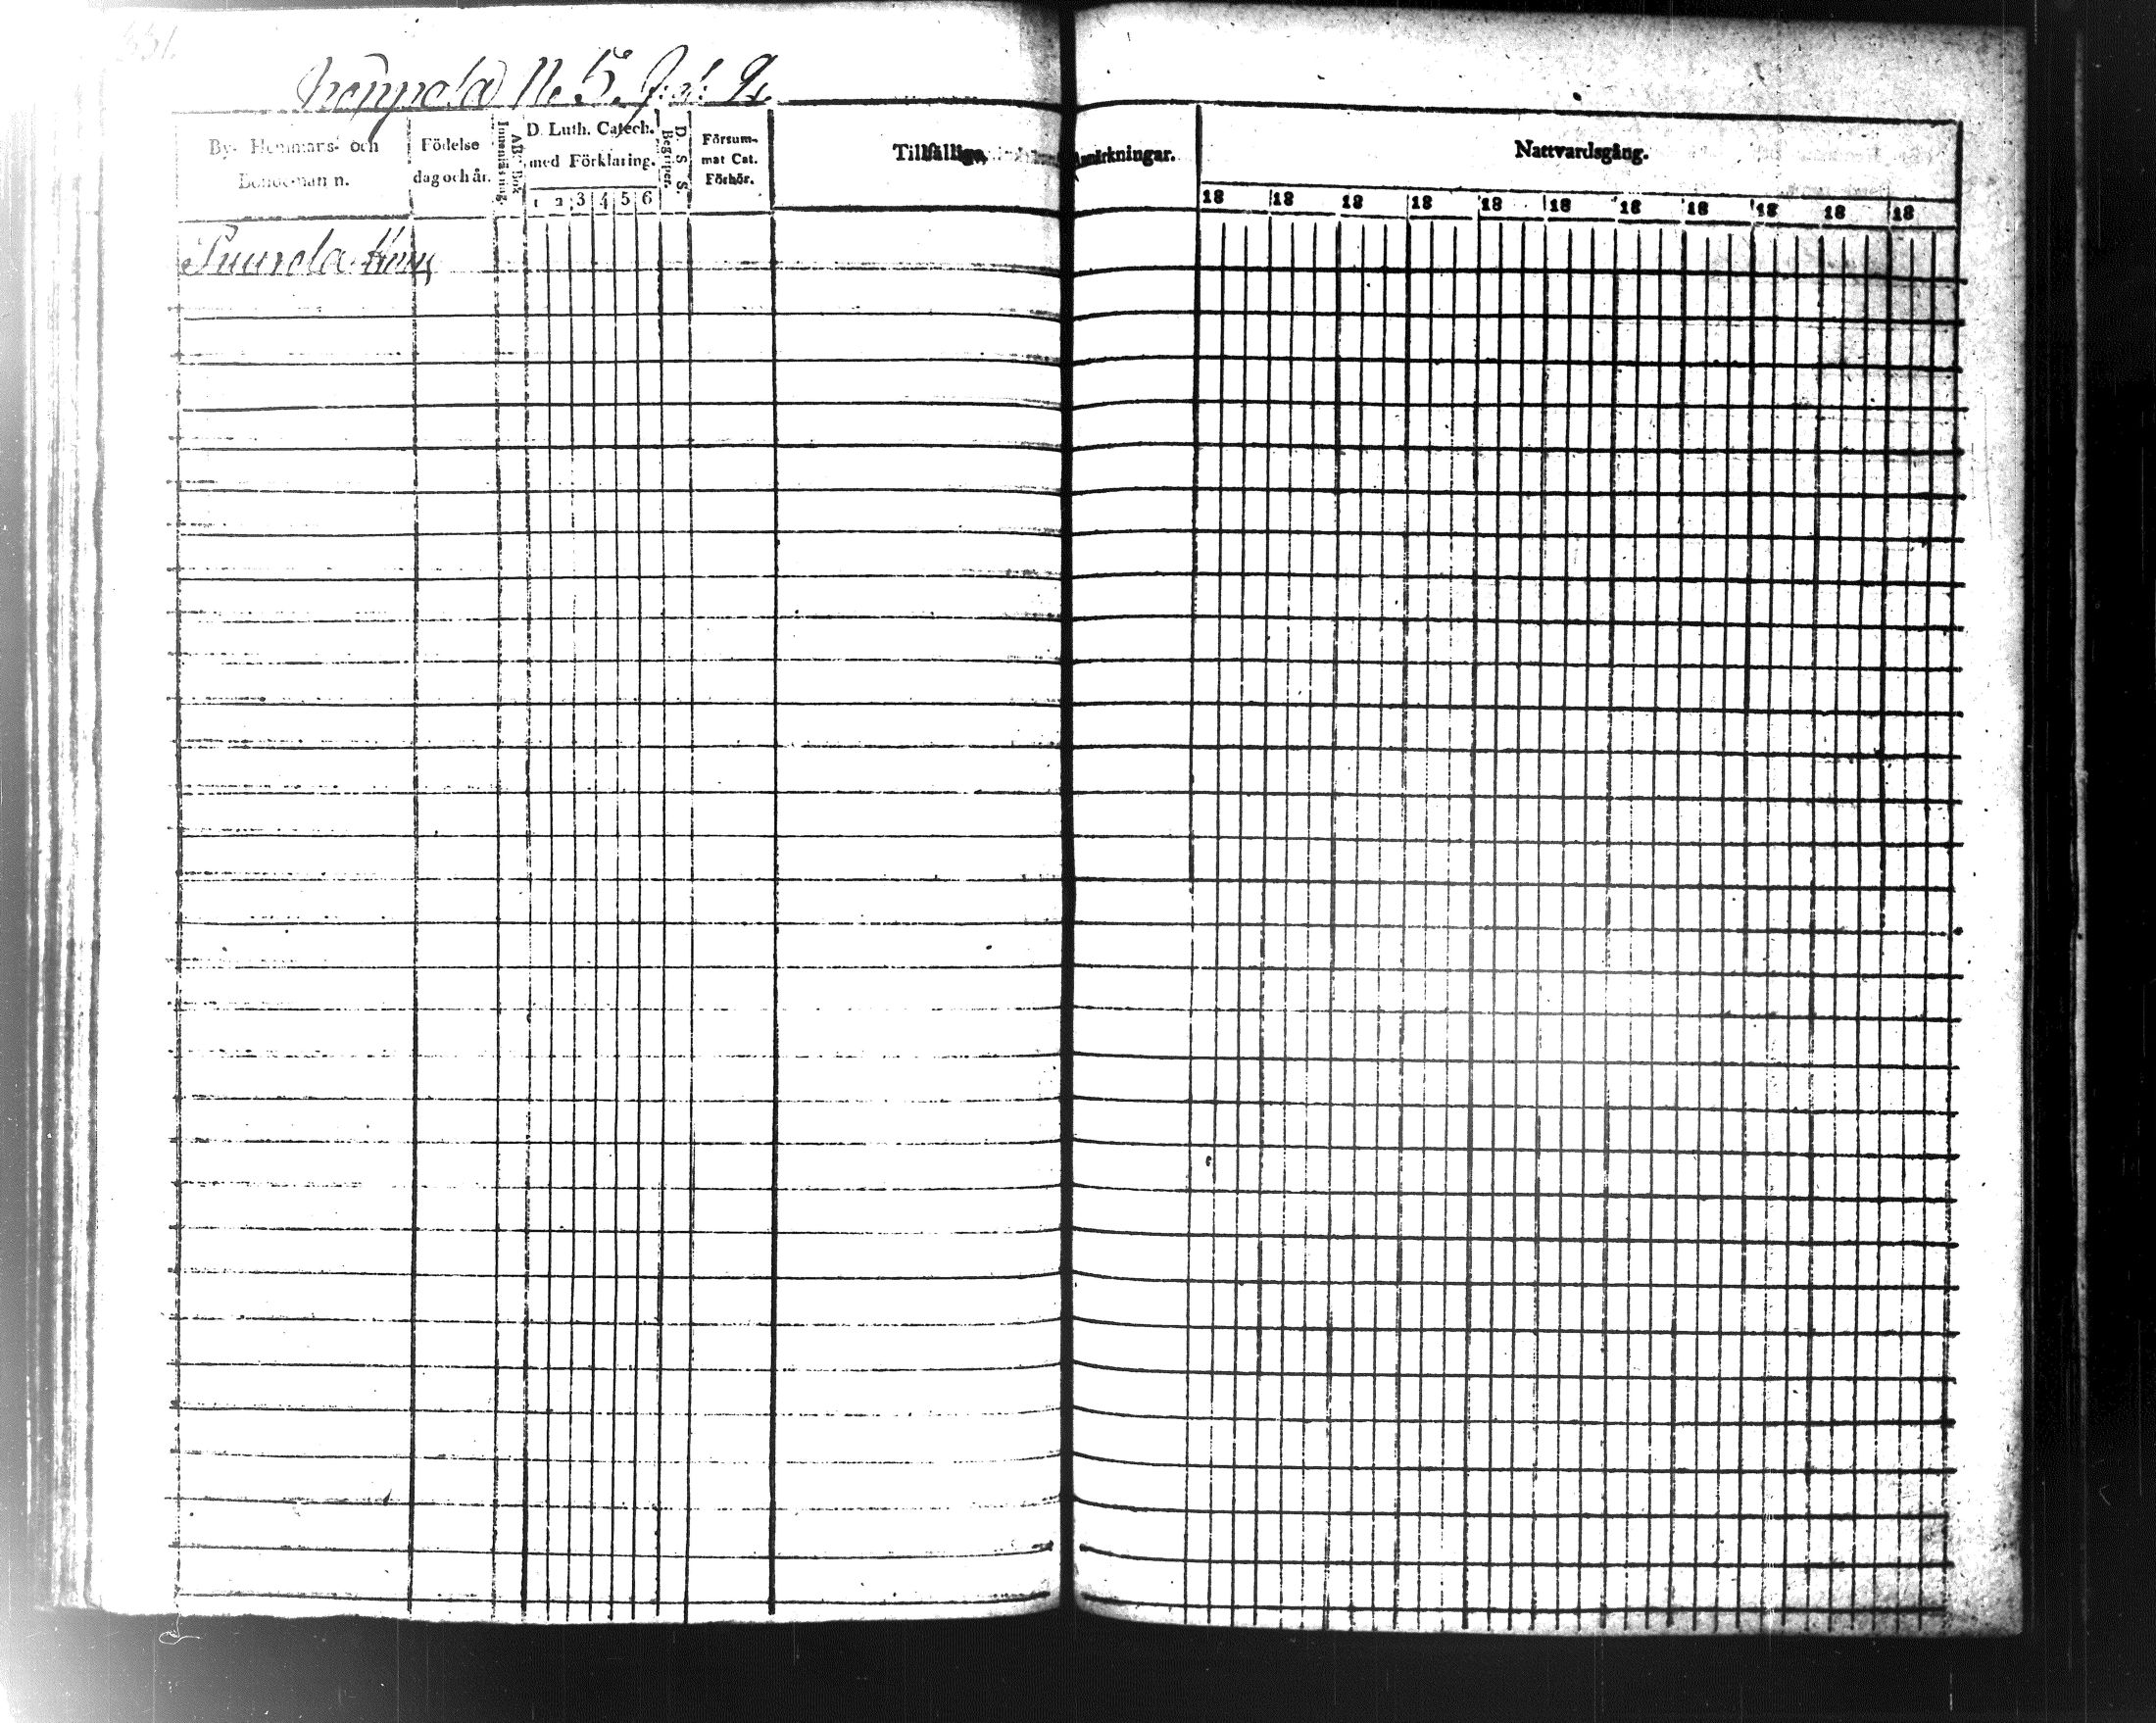 331.
No 5.
By- Hemmans- och
Bondenamn.
Födelse
dag och år.
Innantilsning.
AB: Bok
D. Luth. Catech.
med Förklaring.
1 2 3 4 5 6
D. S. S.
Begriper.
Försum-
mat Cat.
Förhör.
Tillfällige
Anmärkningar.
Nattvardsgång.
18 18 18 18 18 18 18 18 18 18 18
Puurola